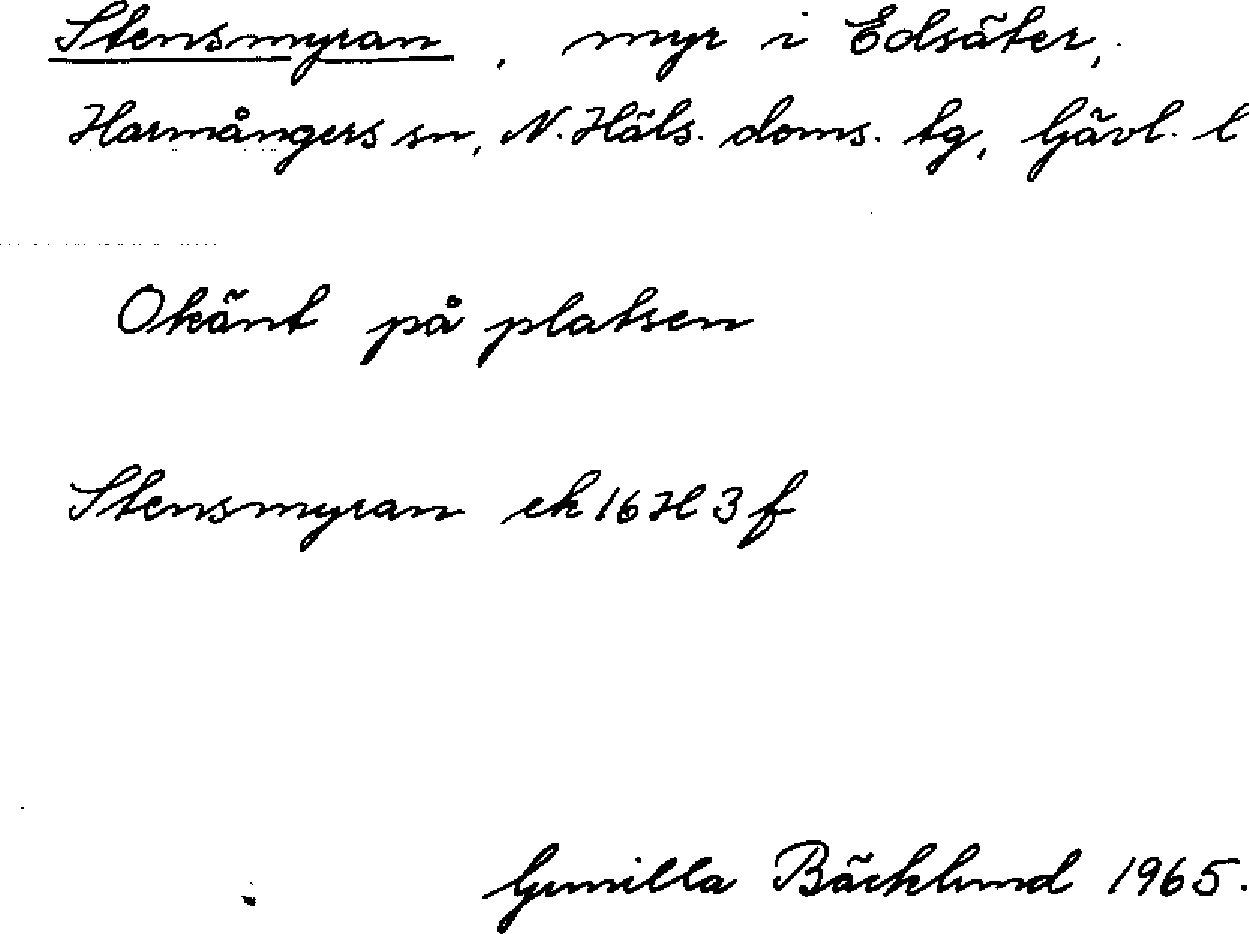 Stensmyran, myr i Edsäter,
Harmångers sn, N. Häls. doms. tg, Gävl. l
Okänt på platsen
Stensmyran ek 16 H 3 f
Gunilla Bäcklund 1965.